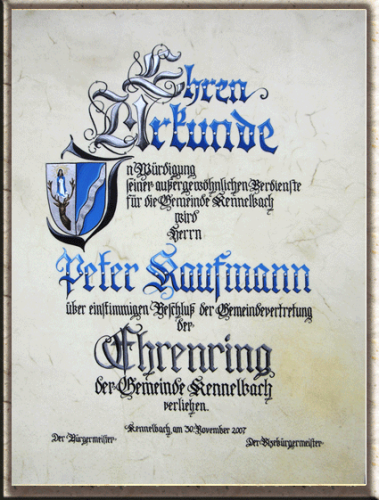 Ehren
Urkunde
In Würdigung
seiner außergewöhnlichen Verdienste
für die Gemeinde Kennelbach
wird
Herrn
Peter Kaufmann
über einstimmigen Beschluß der Gemeindevertretung
der
Ehrenring
der Gemeinde Kennelbach
verliehen.
Kennelbach, am 30. November 2007
Der Bürgermeister
Der Vizebürgermeister